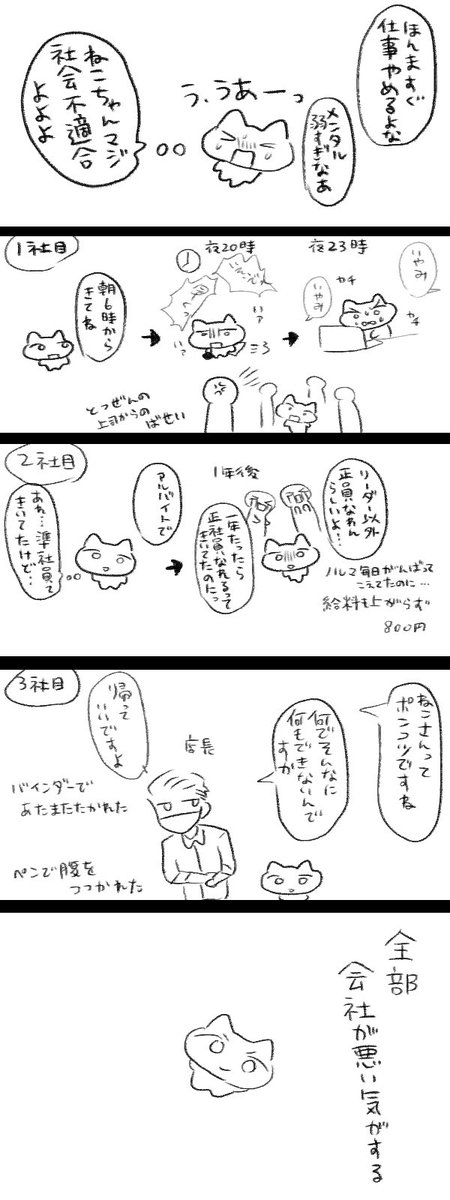 ほんますぐ
仕事やめるよな
メンタル
弱すぎなあ
う、うあーっ
ねこちゃんマジ
社会不適合
よよよ
1社目
朝6時から
きてね
夜20時
いァ
いァ
夜23時
いやみ
いやみ
カチ
カチ
とつぜんの
上司からのばせい
2社目
アルバイトで
あれ…準社員て
きいてたけど…
1年後
リーダー以外
正員なれん
らしいよ…
一年たったら
正社員なれるって
きいてたのにっ
ノルマ毎日がんばって
こえてたのに…
給料も上がらず
800円
3社目
ねこさんって
ポンコツですね
何でそんなに
何もできないんで
すか
店長
帰って
いいですよ
バインダーで
あたまたたかれた
ペンで腹を
つつかれた
全部
会社が悪い気がする